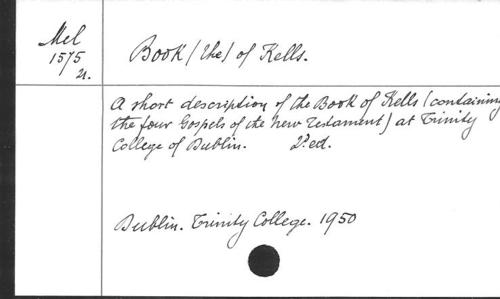 Mel
1575
Book (the) of Kells.
A short description of the Book of Kells (containing
the four Gospels of the New Testament) at Trinity
College of Dublin. 2d ed.
Dublin. Trinity College. 1950